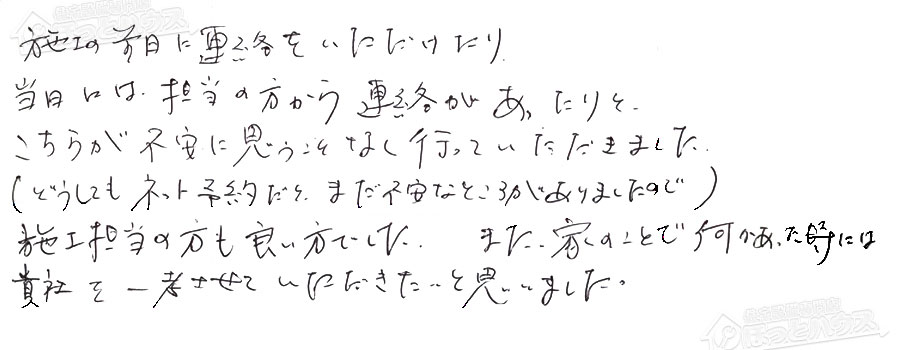 施工の前日に連絡をいただけたり
当日には、担当の方から連絡があったりと、
こちらが不安に思うことなく行っていただきました。
(どうしてもネット予約だと、まだ不安なところがありましたので)
施工担当の方も良い方でした。 また、家のことで何かあった時には
貴社を一考させていただきたいと思いました。
ほっとハウス
住宅設備専門店
ほっとハウス